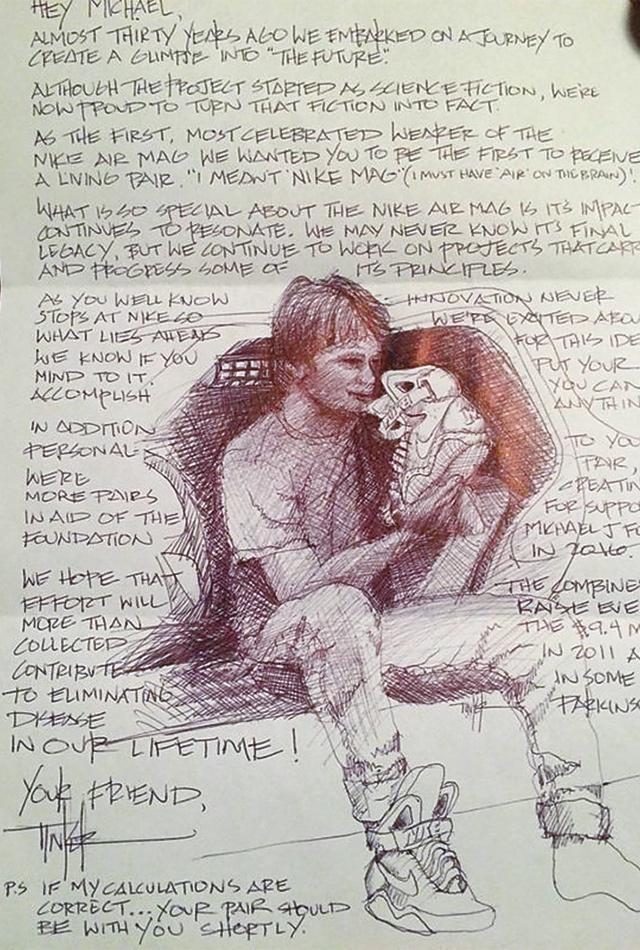 HEY MICHAEL,
ALMOST THIRTY YEARS AGO WE EMBARKED ON A JOURNEY TO
CREATE A GLIMPSE INTO "THE FUTURE."
ALTHOUGH THE PROJECT STARTED AS SCIENCE FICTION, WE'RE
NOW PROUD TO TURN THAT FICTION INTO FACT.
AS THE FIRST, MOST CELEBRATED WEARER OF THE
NIKE AIR MAG WE WANTED YOU TO BE THE FIRST TO RECEIVE
A LIVING PAIR. "I MEANT 'NIKE MAG' (I MUST HAVE 'AIR' ON THE BRAIN)!
WHAT IS SO SPECIAL ABOUT THE NIKE AIR MAG IS IT'S IMPACT
CONTINUES TO RESONATE. WE MAY NEVER KNOW IT'S FINAL
LEGACY, BUT WE CONTINUE TO WORK ON PROJECTS THAT CARR
AND PROGRESS SOME OF ITS PRINCIPLES.
AS YOU WELL KNOW INNOVATION NEVER
STOPS AT NIKE SO WE'RE EXCITED ABOU
WHAT LIES AHEAD FOR THIS IDE
WE KNOW IF YOU PUT YOUR
MIND TO IT. YOU CAN
ACCOMPLISH ANYTHIN
IN ADDITION TO YOU
PERSONAL PAIR,
WE'RE CREATIN
MORE PAIRS FOR SUPPO
IN AID OF THE MICHAEL J FO
FOUNDATION IN 2016.
WE HOPE THAT THE COMBINE
EFFORT WILL RAISE EVE
MORE THAN THE $9.4 M
COLLECTED IN 2011 A
CONTRIBUTE IN SOME
TO ELIMINATING PARKINSO
DISEASE
TINKER
IN OUR LIFETIME!
YOUR FRIEND,
TINKER
P.S IF MY CALCULATIONS ARE
CORRECT... YOUR PAIR SHOULD
BE WITH YOU SHORTLY.